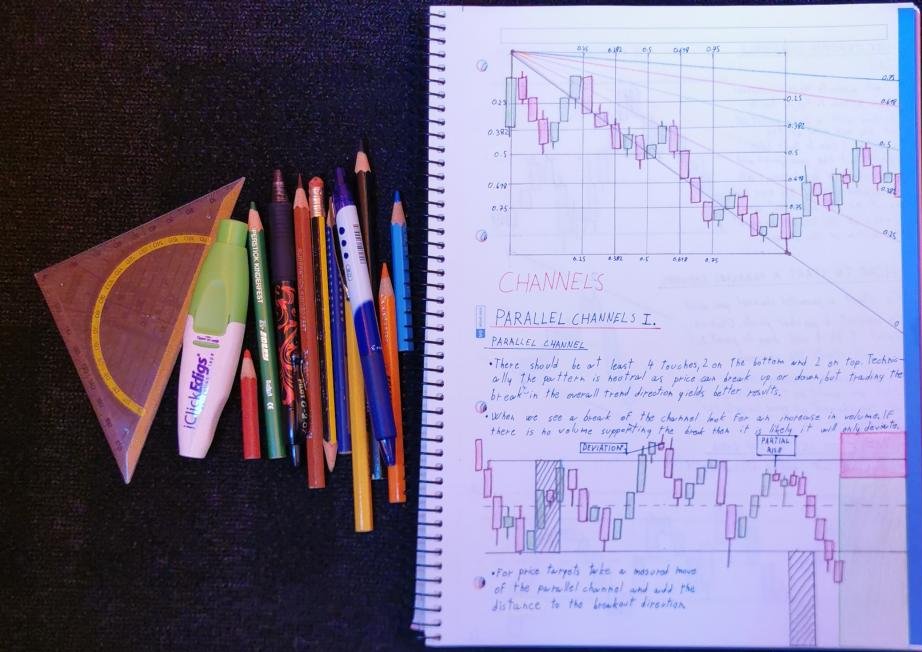 0.25 0.382 0.5 0.618 0.75
0.75
0.618
0.25 0.25
0.382 0.382
0.5 0.5 0.5
0.618 0.618
0.75 0.75
0.25
0.25 0.382 0.5 0.618 0.75
0
CHANNELS
PARALLEL CHANNELS I.
PARALLEL CHANNEL
• There should be at least 4 touches, 2 on the bottom and 2 on top. Technic-
ally the pattern is neutral as price can break up or down, but trading the
break in the overall trend direction yields better results.
• When we see a break of the channel look for an increase in volume. If
there is no volume supporting the break then it is likely it will only deviate.
DEVIATION
PARTIAL
RISE
• For price targets take a mesured move
of the parallel channel and add the
distance to the breakout direction.
iClick Edigs